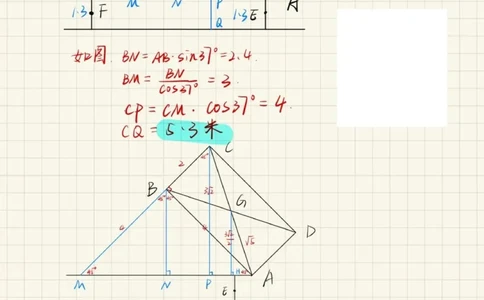 1.3 F M N P 1.3 E A
Q
如图. BN=AB·sin37°=2.4.
BM= BN/cos37° = 3.
CP=CM·cos37°=4.
CQ=5.3米
C
2
B
3√2
G
D
√5
M N P A
45°
E